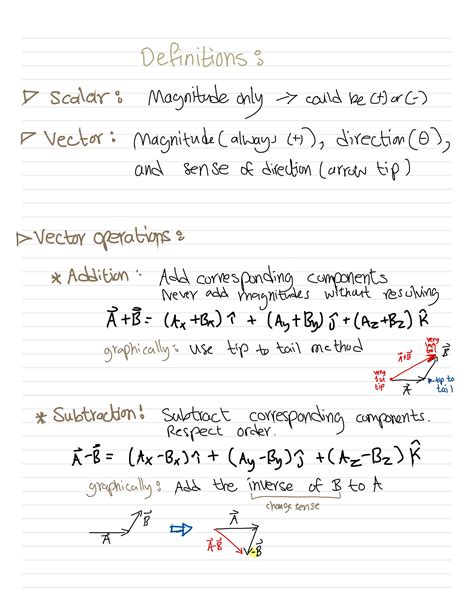 Definitions:
▷ Scalar: Magnitude only → could be (+) or (-)
▷ Vector: Magnitude (always (+)), direction (θ),
and sense of direction (arrow tip)
▷ Vector operations:
* Addition: Add corresponding components
Never add magnitudes without resolving
A⃗+B⃗ = (Ax+Bx) î + (Ay+By) ĵ + (Az+Bz) K̂
graphically: use tip to tail method
very last tip
A+B
B⃗
very 1st tip
A⃗
tip to tail
* Subtraction! Subtract corresponding components.
Respect order.
A⃗-B⃗ = (Ax-Bx) î + (Ay-By) ĵ + (Az-Bz) K̂
graphically: Add the inverse of B to A
change sense
A⃗ B⃗ ⇨ A⃗ A⃗-B⃗ -B⃗